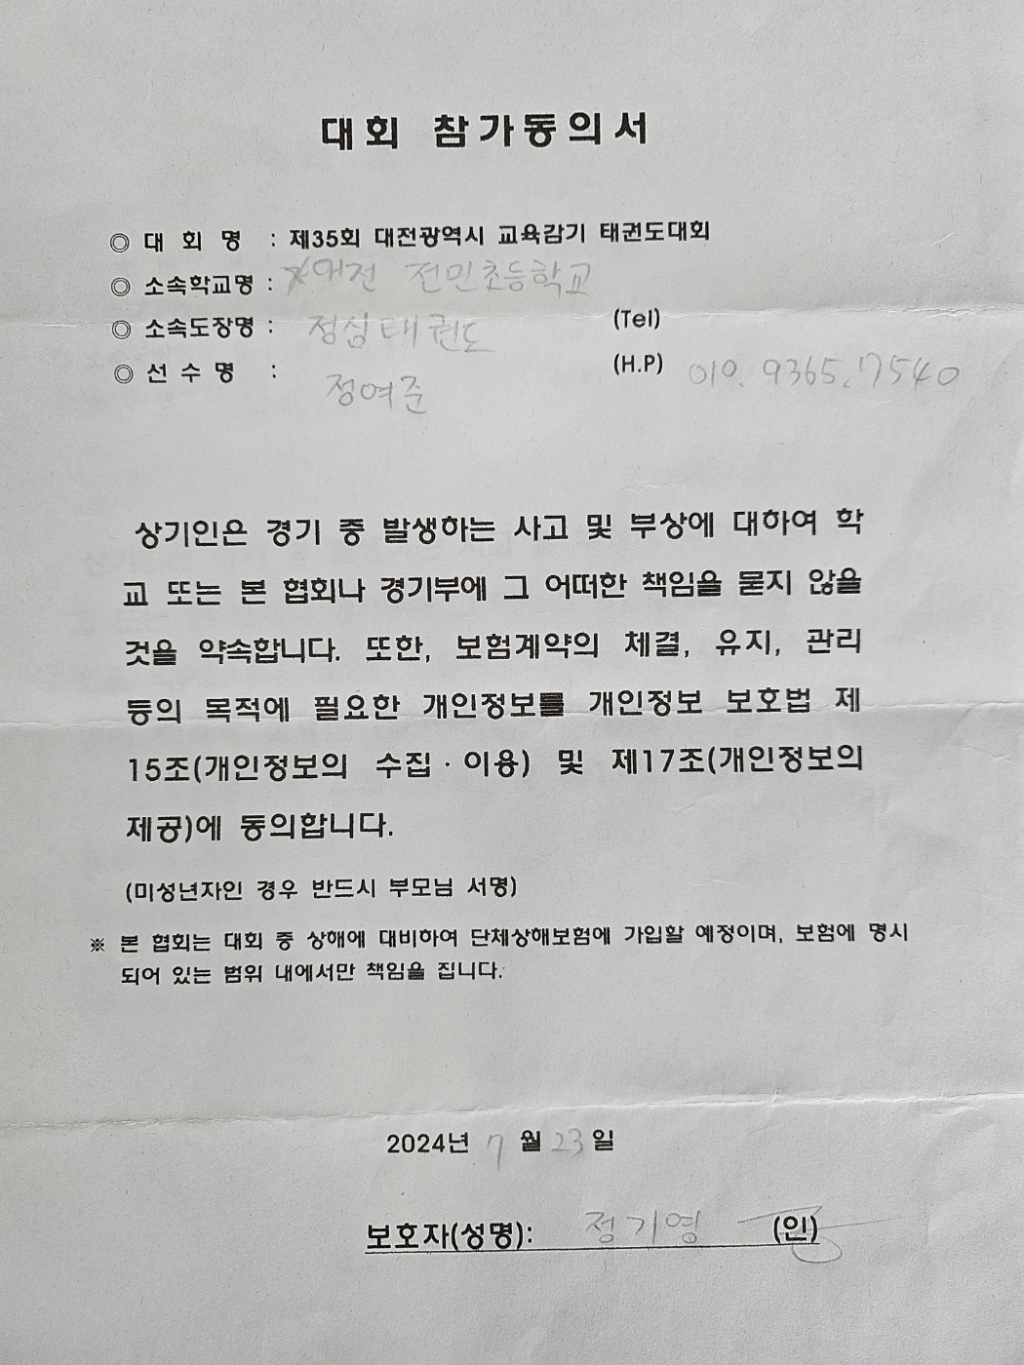 대회 참가동의서
◎ 대 회 명 : 제35회 대전광역시 교육감기 태권도대회
◎ 소속학교명 : 대전 전민초등학교
◎ 소속도장명 : 정심태권도 (Tel)
◎ 선 수 명 : 정여준 (H.P) 010. 9365. 7540
상기인은 경기 중 발생하는 사고 및 부상에 대하여 학
교 또는 본 협회나 경기부에 그 어떠한 책임을 묻지 않을
것을 약속합니다. 또한, 보험계약의 체결, 유지, 관리
등의 목적에 필요한 개인정보를 개인정보 보호법 제
15조(개인정보의 수집 · 이용) 및 제17조(개인정보의
제공)에 동의합니다.
(미성년자인 경우 반드시 부모님 서명)
※ 본 협회는 대회 중 상해에 대비하여 단체상해보험에 가입할 예정이며, 보험에 명시
되어 있는 범위 내에서만 책임을 집니다.
2024년 7 월 23 일
보호자(성명): 정기영 (인)